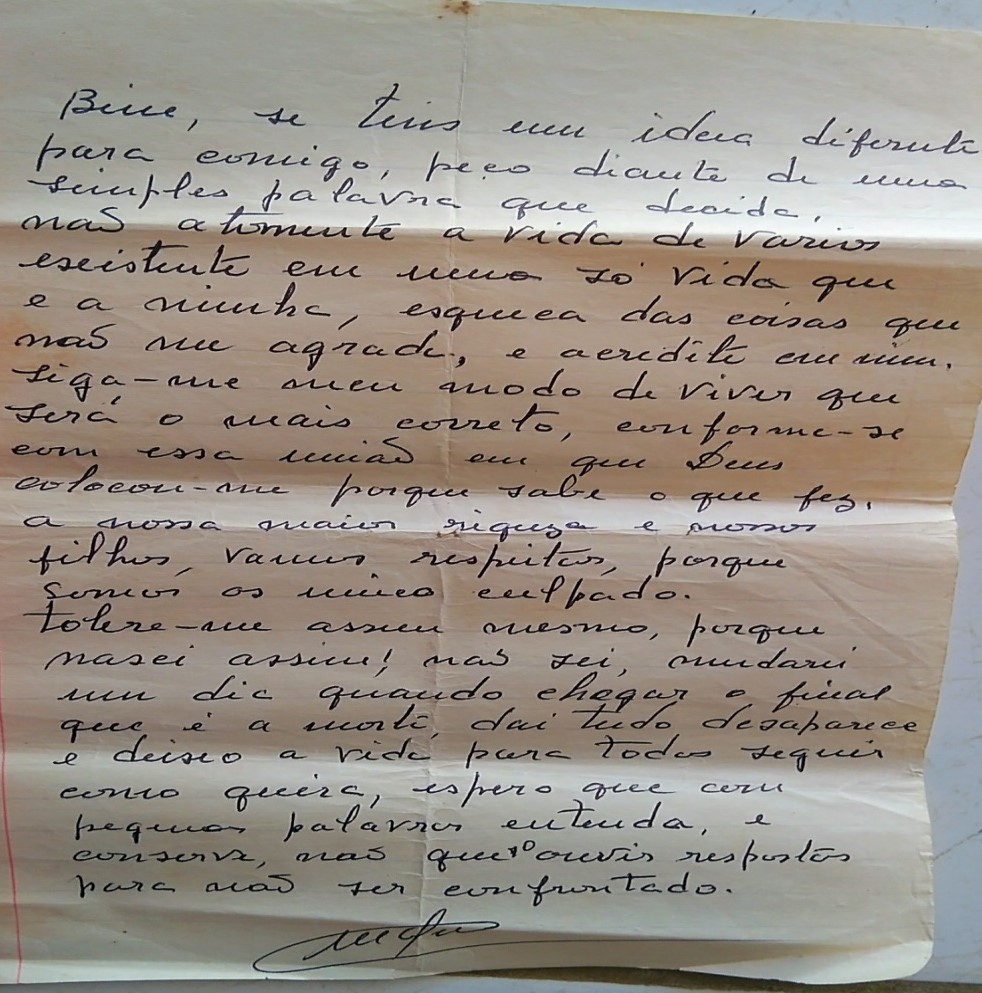 Bine, se tens um ideia diferente
para comigo, peço diante de uma
simples palavra que decida.
não atomente a vida de varios
exeistente em uma só vida que
e a minha, esqueca das coisas que
não me agrade, e acredite em mim.
siga-me meu modo de viver que
será o mais correto, conforme-se
com essa união em que Deus
colocou-me porque sabe o que fez.
a nossa maior riqueza e nossos
filhos, vamos respeitar, porque
somos os unico culpado.
tolere-me assim mesmo, porque
nasci assim! não sei, mudarei
um dia quando chegar o final
que é a morte, dai tudo desaparece
e deixo a vida para todos seguir
como queira, espero que com
pequenas palavras entenda, e
conserve, não quero ouvir respostas
para não ser confrontado.